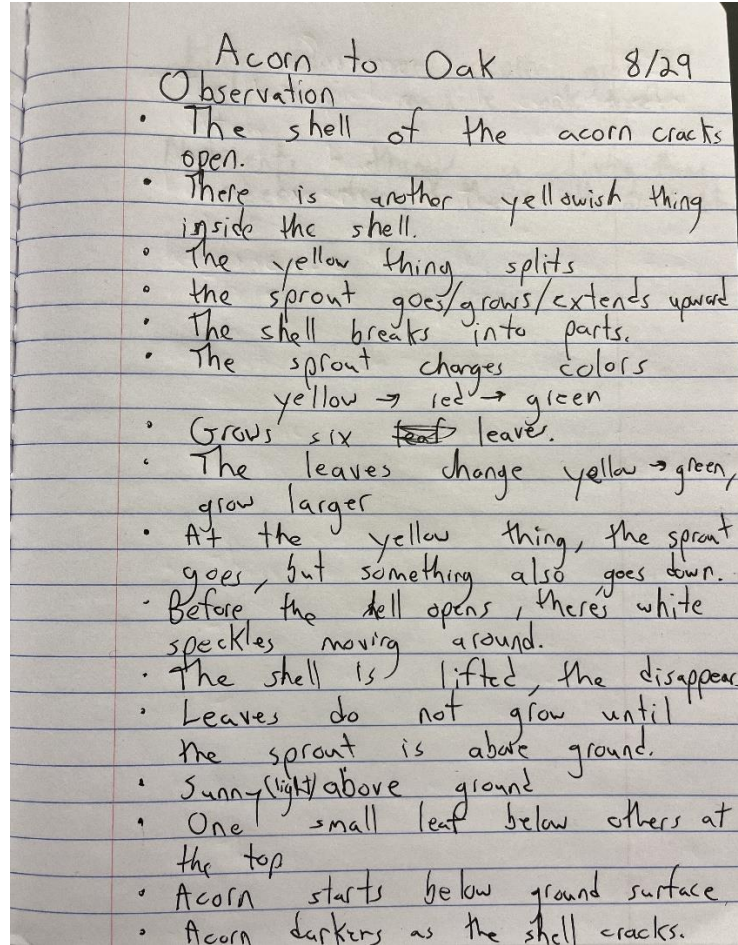 Acorn to Oak 8/29
Observation
• The shell of the acorn cracks
open.
• There is another yellowish thing
inside the shell.
• The yellow thing splits
• the sprout goes/grows/extends upward
• The shell breaks into parts.
• The sprout changes colors
yellow → red → green
• Grows six leaves.
• The leaves change yellow → green,
grow larger
• At the yellow thing, the sprout
goes, but something also goes down.
• Before the shell opens, there's white
speckles moving around.
• The shell is lifted, the disappear
• Leaves do not grow until
the sprout is above ground.
• Sunny (light) above ground
• One small leaf below others at
the top
• Acorn starts below ground surface
• Acorn darkens as the shell cracks.